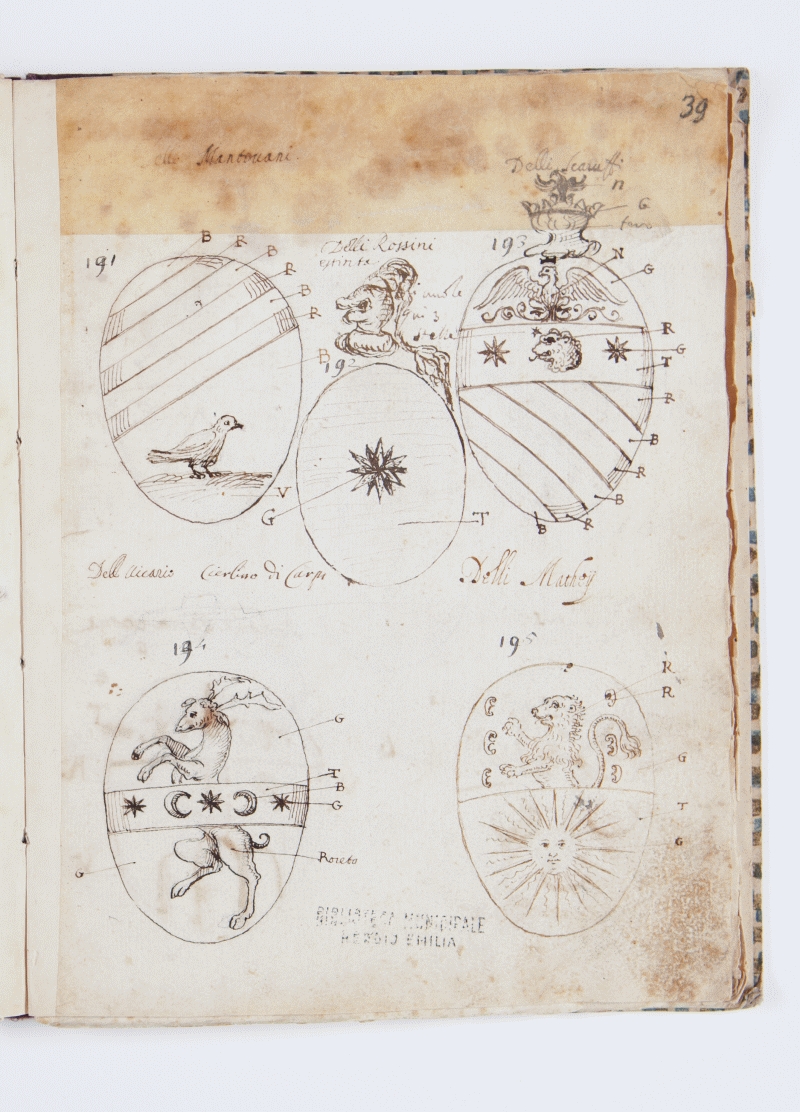 39
Mantouani
Delli Scaruffi
n
G
191
B
R
B
R
B
R
B
V
Delli Rossini
estinta
192
G
T
193
N
G
R
G
T
R
B
R
B
R
B
Dell Vicario
di Carpi
Delli Mathei
194
G
T
B
G
G
195
R
R
G
T
G
BIBLIOTECA MUNICIPALE
REGGIO EMILIA